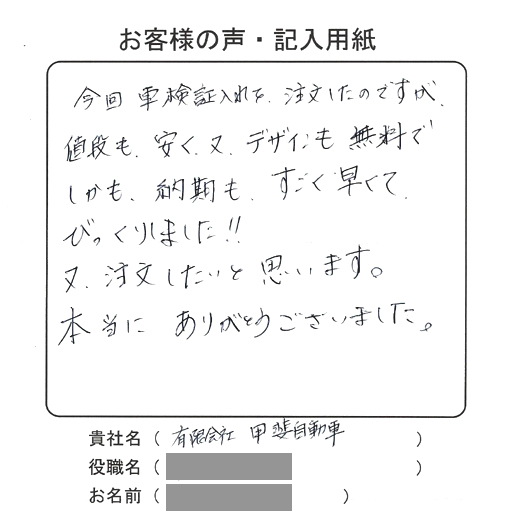 お客様の声・記入用紙
今回 車検証入れを、注文したのですが、
値段も、安く、又、デザインも 無料で
しかも、納期も、すごく早くて、
びっくりしました!!
又、注文したいと思います。
本当に ありがとうございました。
貴社名（ 有限会社 甲斐自動車 ）
役職名（ ）
お名前（ ）